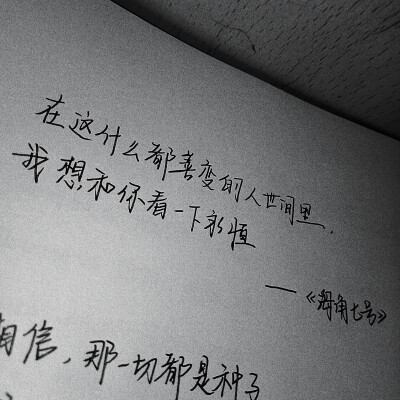 在这什么都善变的人世间里.
我想和你看一下永恒
——《海角七号》
相信，那一切都是种子